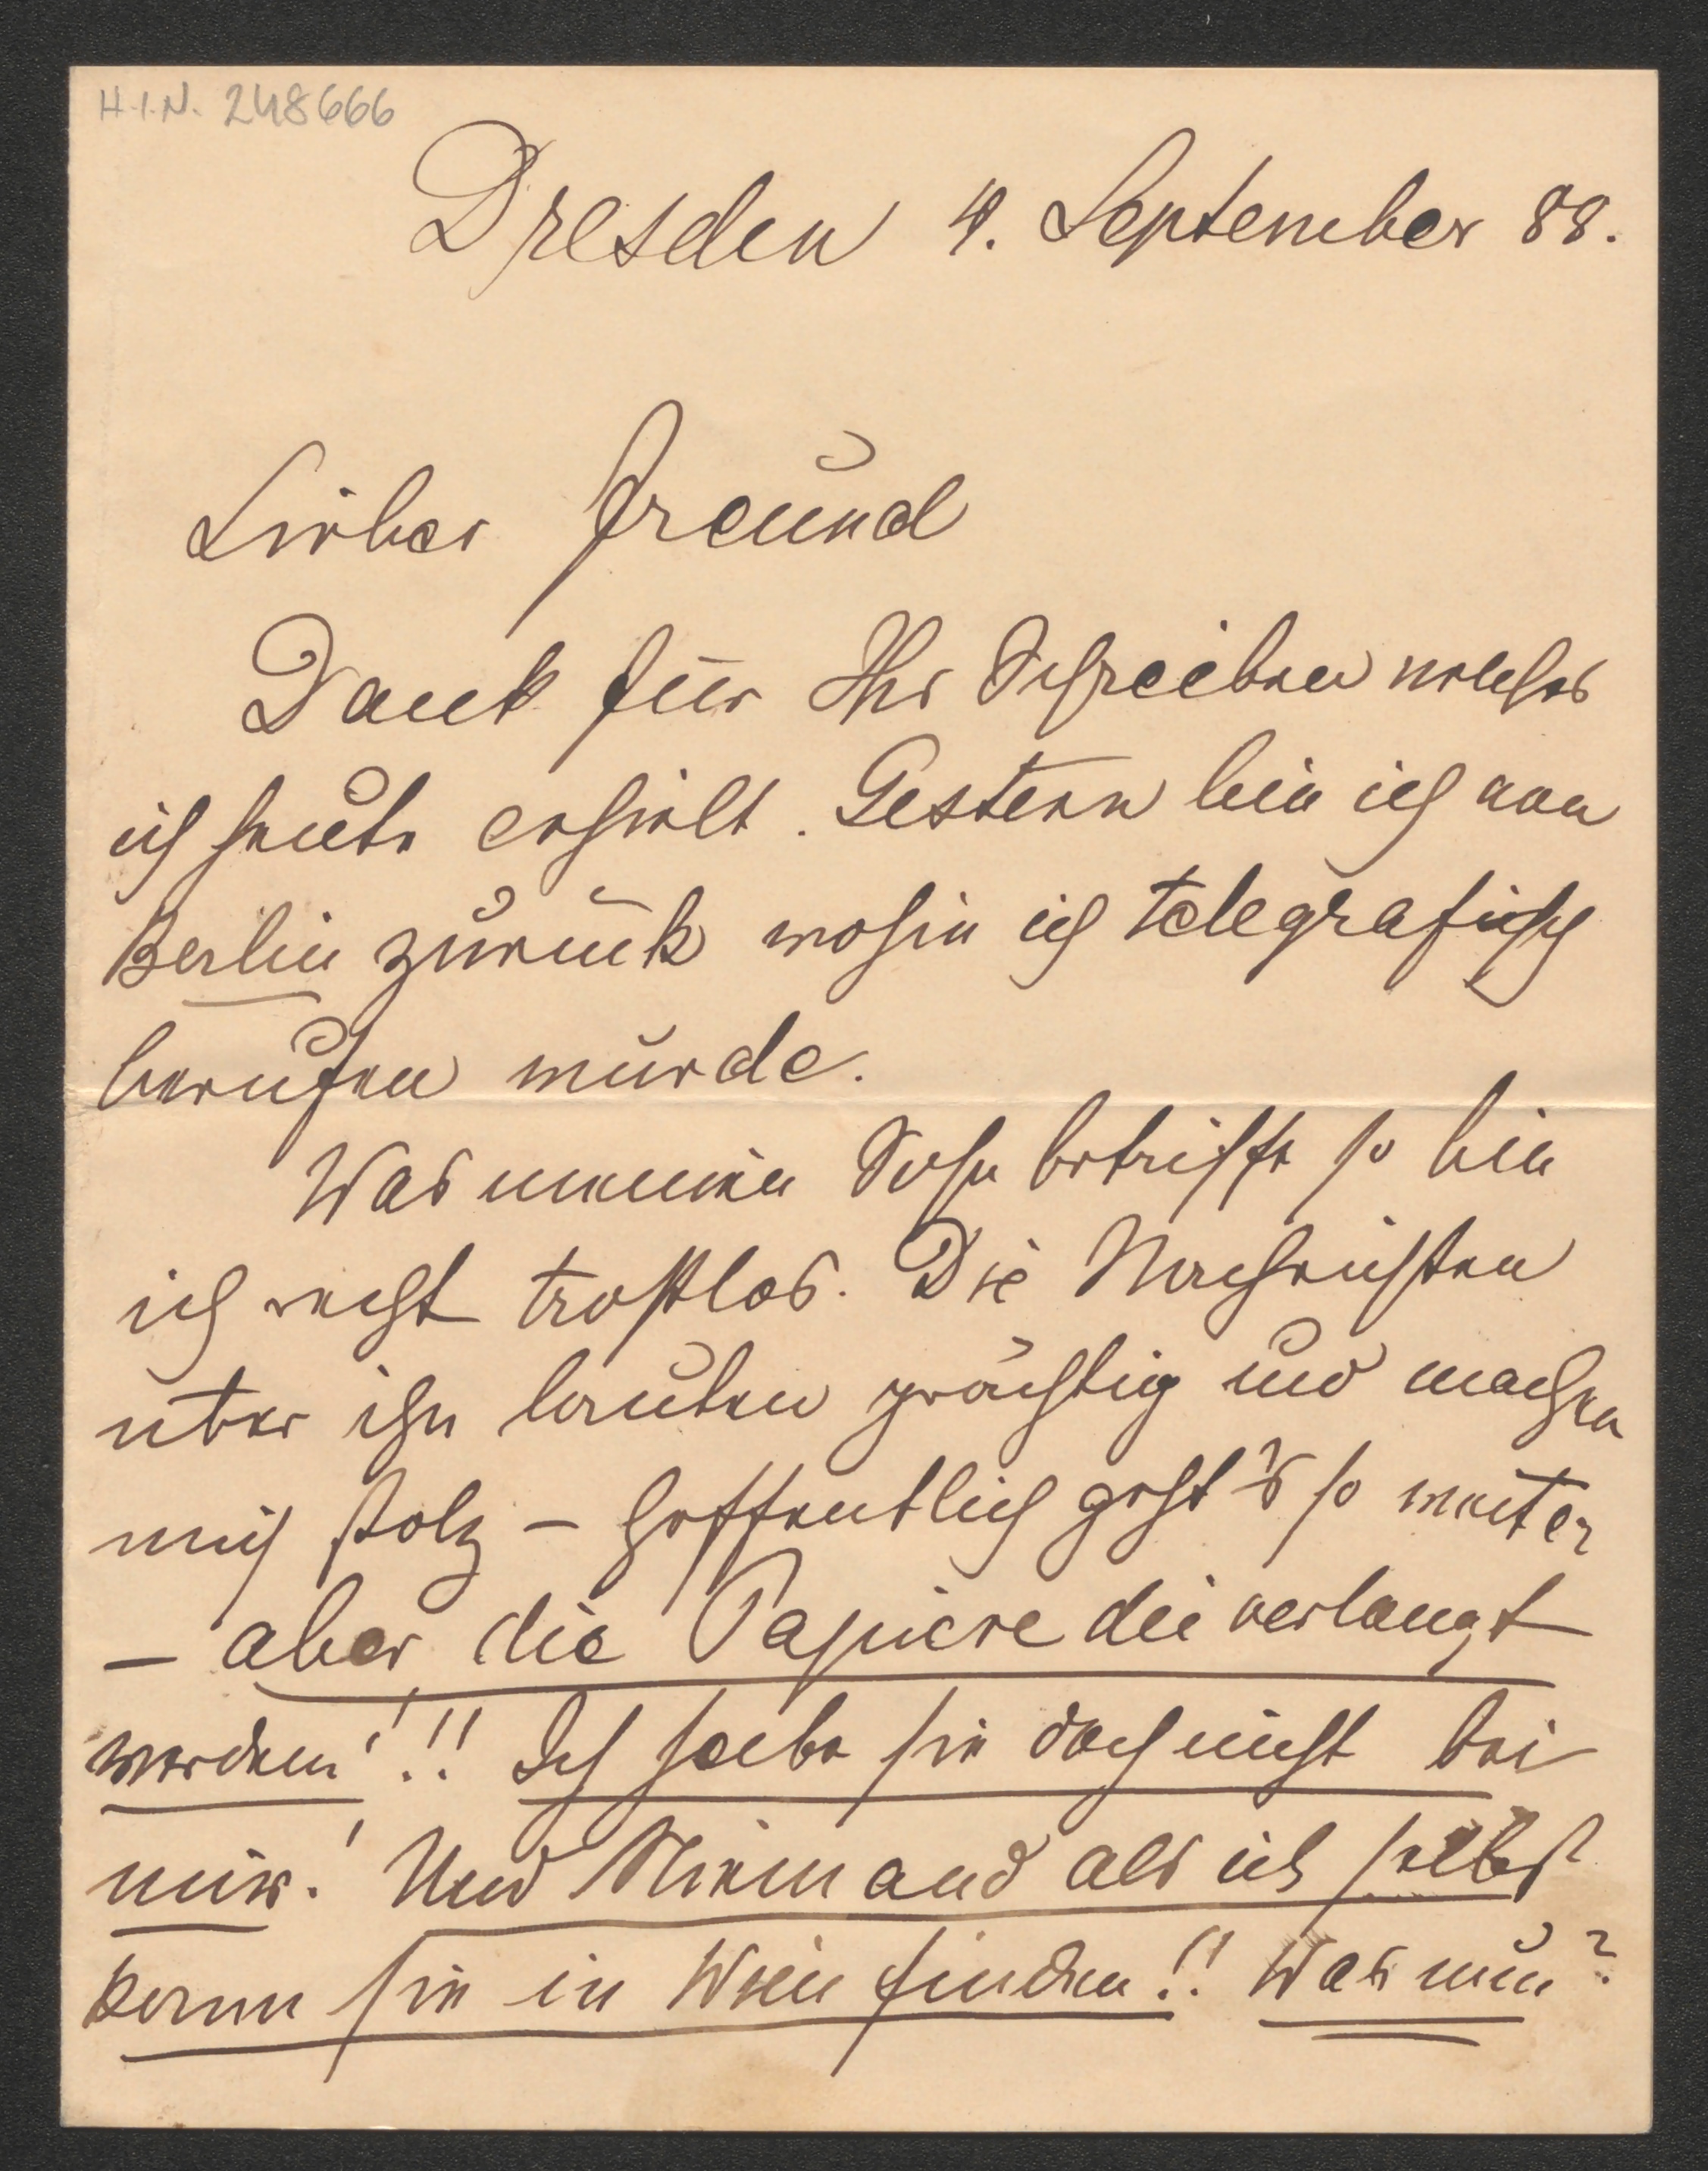 H.I.N. 248666
Dresden 4. September 88.
Lieber Freund
Dank für Ihr Schreiben welches
ich heute erhielt. Gestern bin ich von
Berlin zurück wohin ich telegrafisch
berufen wurde.
Was meinen Sohn betrifft so bin
ich recht trostlos. Die Nachrichten
über ihn lauten prächtig und machen
mich stolz – hoffentlich geht's so weiter
– aber die Papiere die verlangt
werden!!! Ich habe sie doch nicht bei
mir! Und Niemand als ich selbst
kann sie in Wien finden!! Was nun?